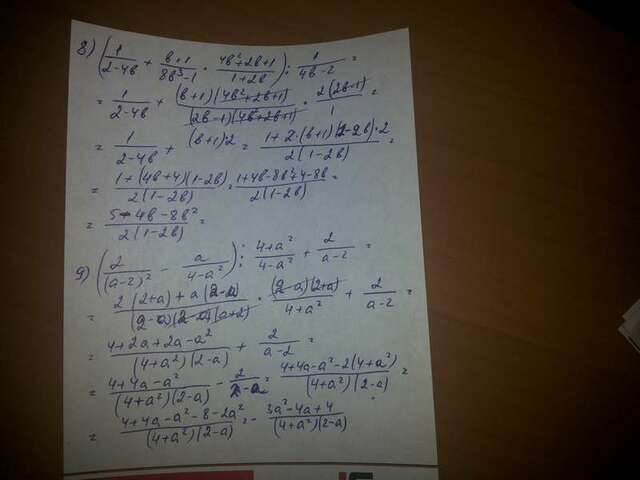 8) (1/(2-4в) + (в+1)/(8в³-1) · (4в²+2в+1)/(1+2в)) : 1/(4в-2) =
= 1/(2-4в) + ((в+1)(4в²+2в+1))/((2в-1)(4в²+2в+1)) · 2(2в-1)/1 =
= 1/(2-4в) + (в+1)2 = (1+2·(в+1)(1-2в)·2)/(2(1-2в)) =
= (1+(4в+4)(1-2в))/(2(1-2в)) = (1+4в-8в²+4-8в)/(2(1-2в)) =
= (5-4в-8в²)/(2(1-2в)) =
9) (2/(a-2)² - a/(4-a²)) : (4+a²)/(4-a²) + 2/(a-2) =
= (2(2+a)+a(2-a))/((2-a)(2-a)(a+2)) · ((2-a)(2+a))/(4+a²) + 2/(a-2) =
= (4+2a+2a-a²)/((4+a²)(2-a)) + 2/(a-2) =
= (4+4a-a²)/((4+a²)(2-a)) - 2/(2-a) = (4+4a-a²-2(4+a²))/((4+a²)(2-a)) =
= (4+4a-a²-8-2a²)/((4+a²)(2-a)) = - (3a²-4a+4)/((4+a²)(2-a))